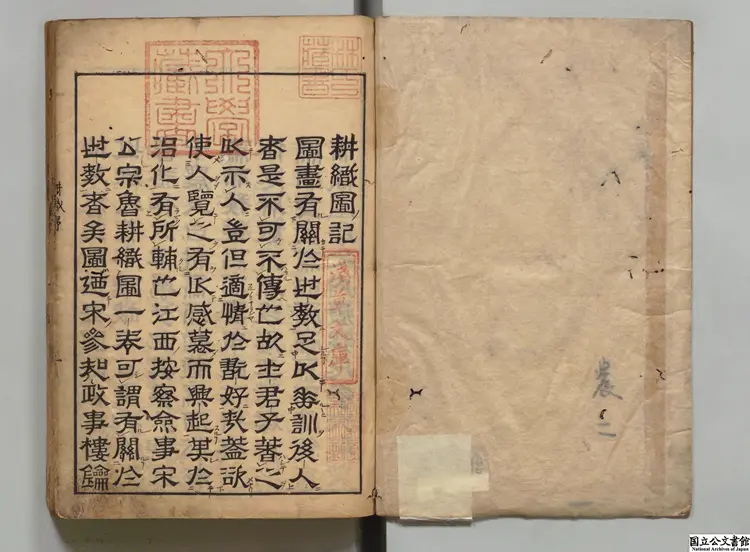 耕織圖記
圖畫有關於世教足以垂訓後人
者是不可不傳也故士君子著之
以示人豈但適情於翫好哉蓋欲
使人覽之有以感慕而興起其於
治化有所輔也江西按察僉事宋
公宗魯耕織圖一卷可謂有關於
世教者矣圖迺宋參知政事樓鑰
林氏藏書
淺草文庫
農二
国立公文書館
National Archives of Japan